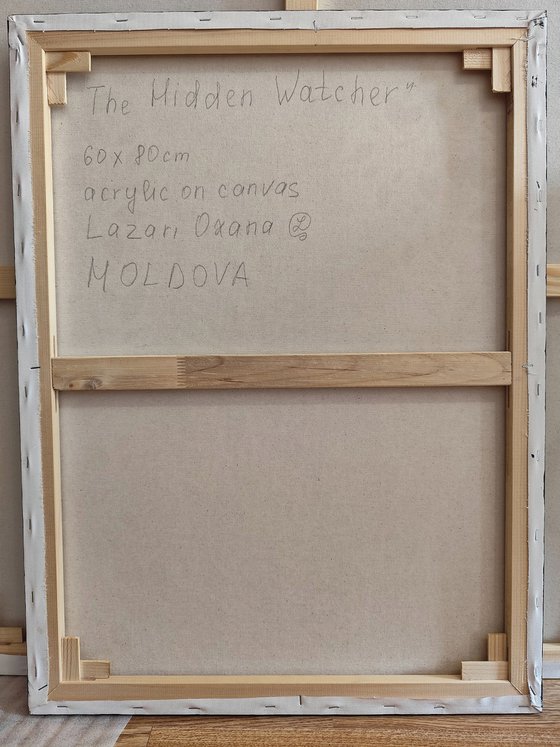 The Hidden Watcher"
60 x 80 cm
acrylic on canvas
Lazari Oxana
MOLDOVA